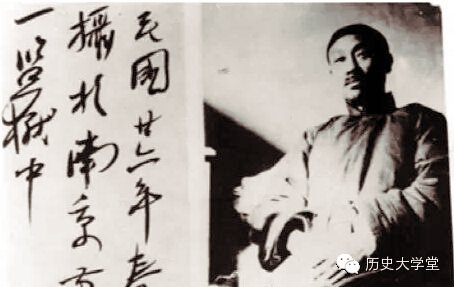 民國廿六年春
攝於南京
一監獄中
历史大学堂